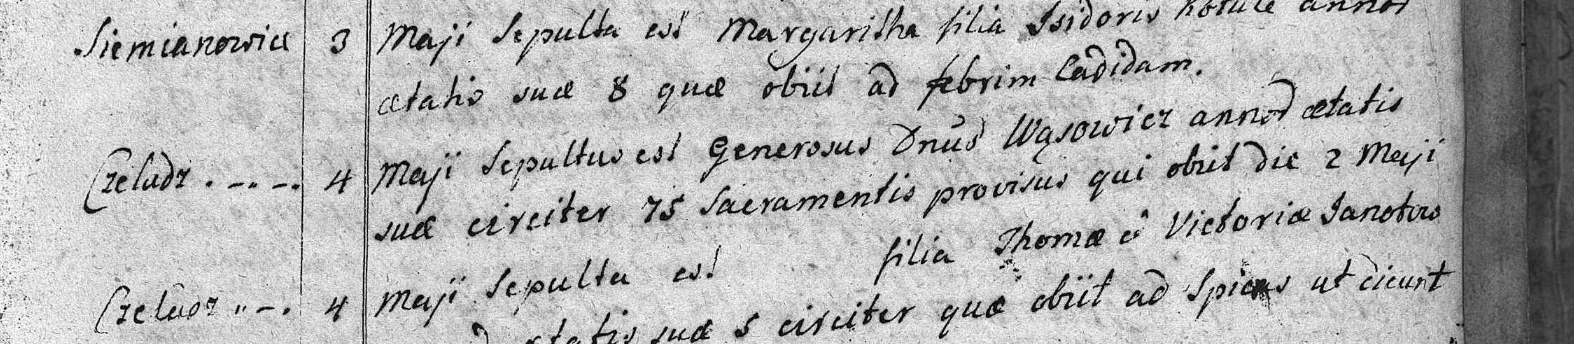 Siemianowice 3 Maji Sepulta est Margaritha filia Isidoris Kotule annor
ætatis suæ 8 quæ obiit ad febrim Cadidam.
Czeladz 4 Maji Sepultus est Generosus Dnus Wąsowicz annor ætatis
suæ circiter 75 Sacramentis provisus qui obiit die 2 Maji
Czeladz 4 Maji Sepulta est filia Thomæ et Victoriæ Janotow
ætatis suæ 5 circiter quæ obiit ad ut dicunt